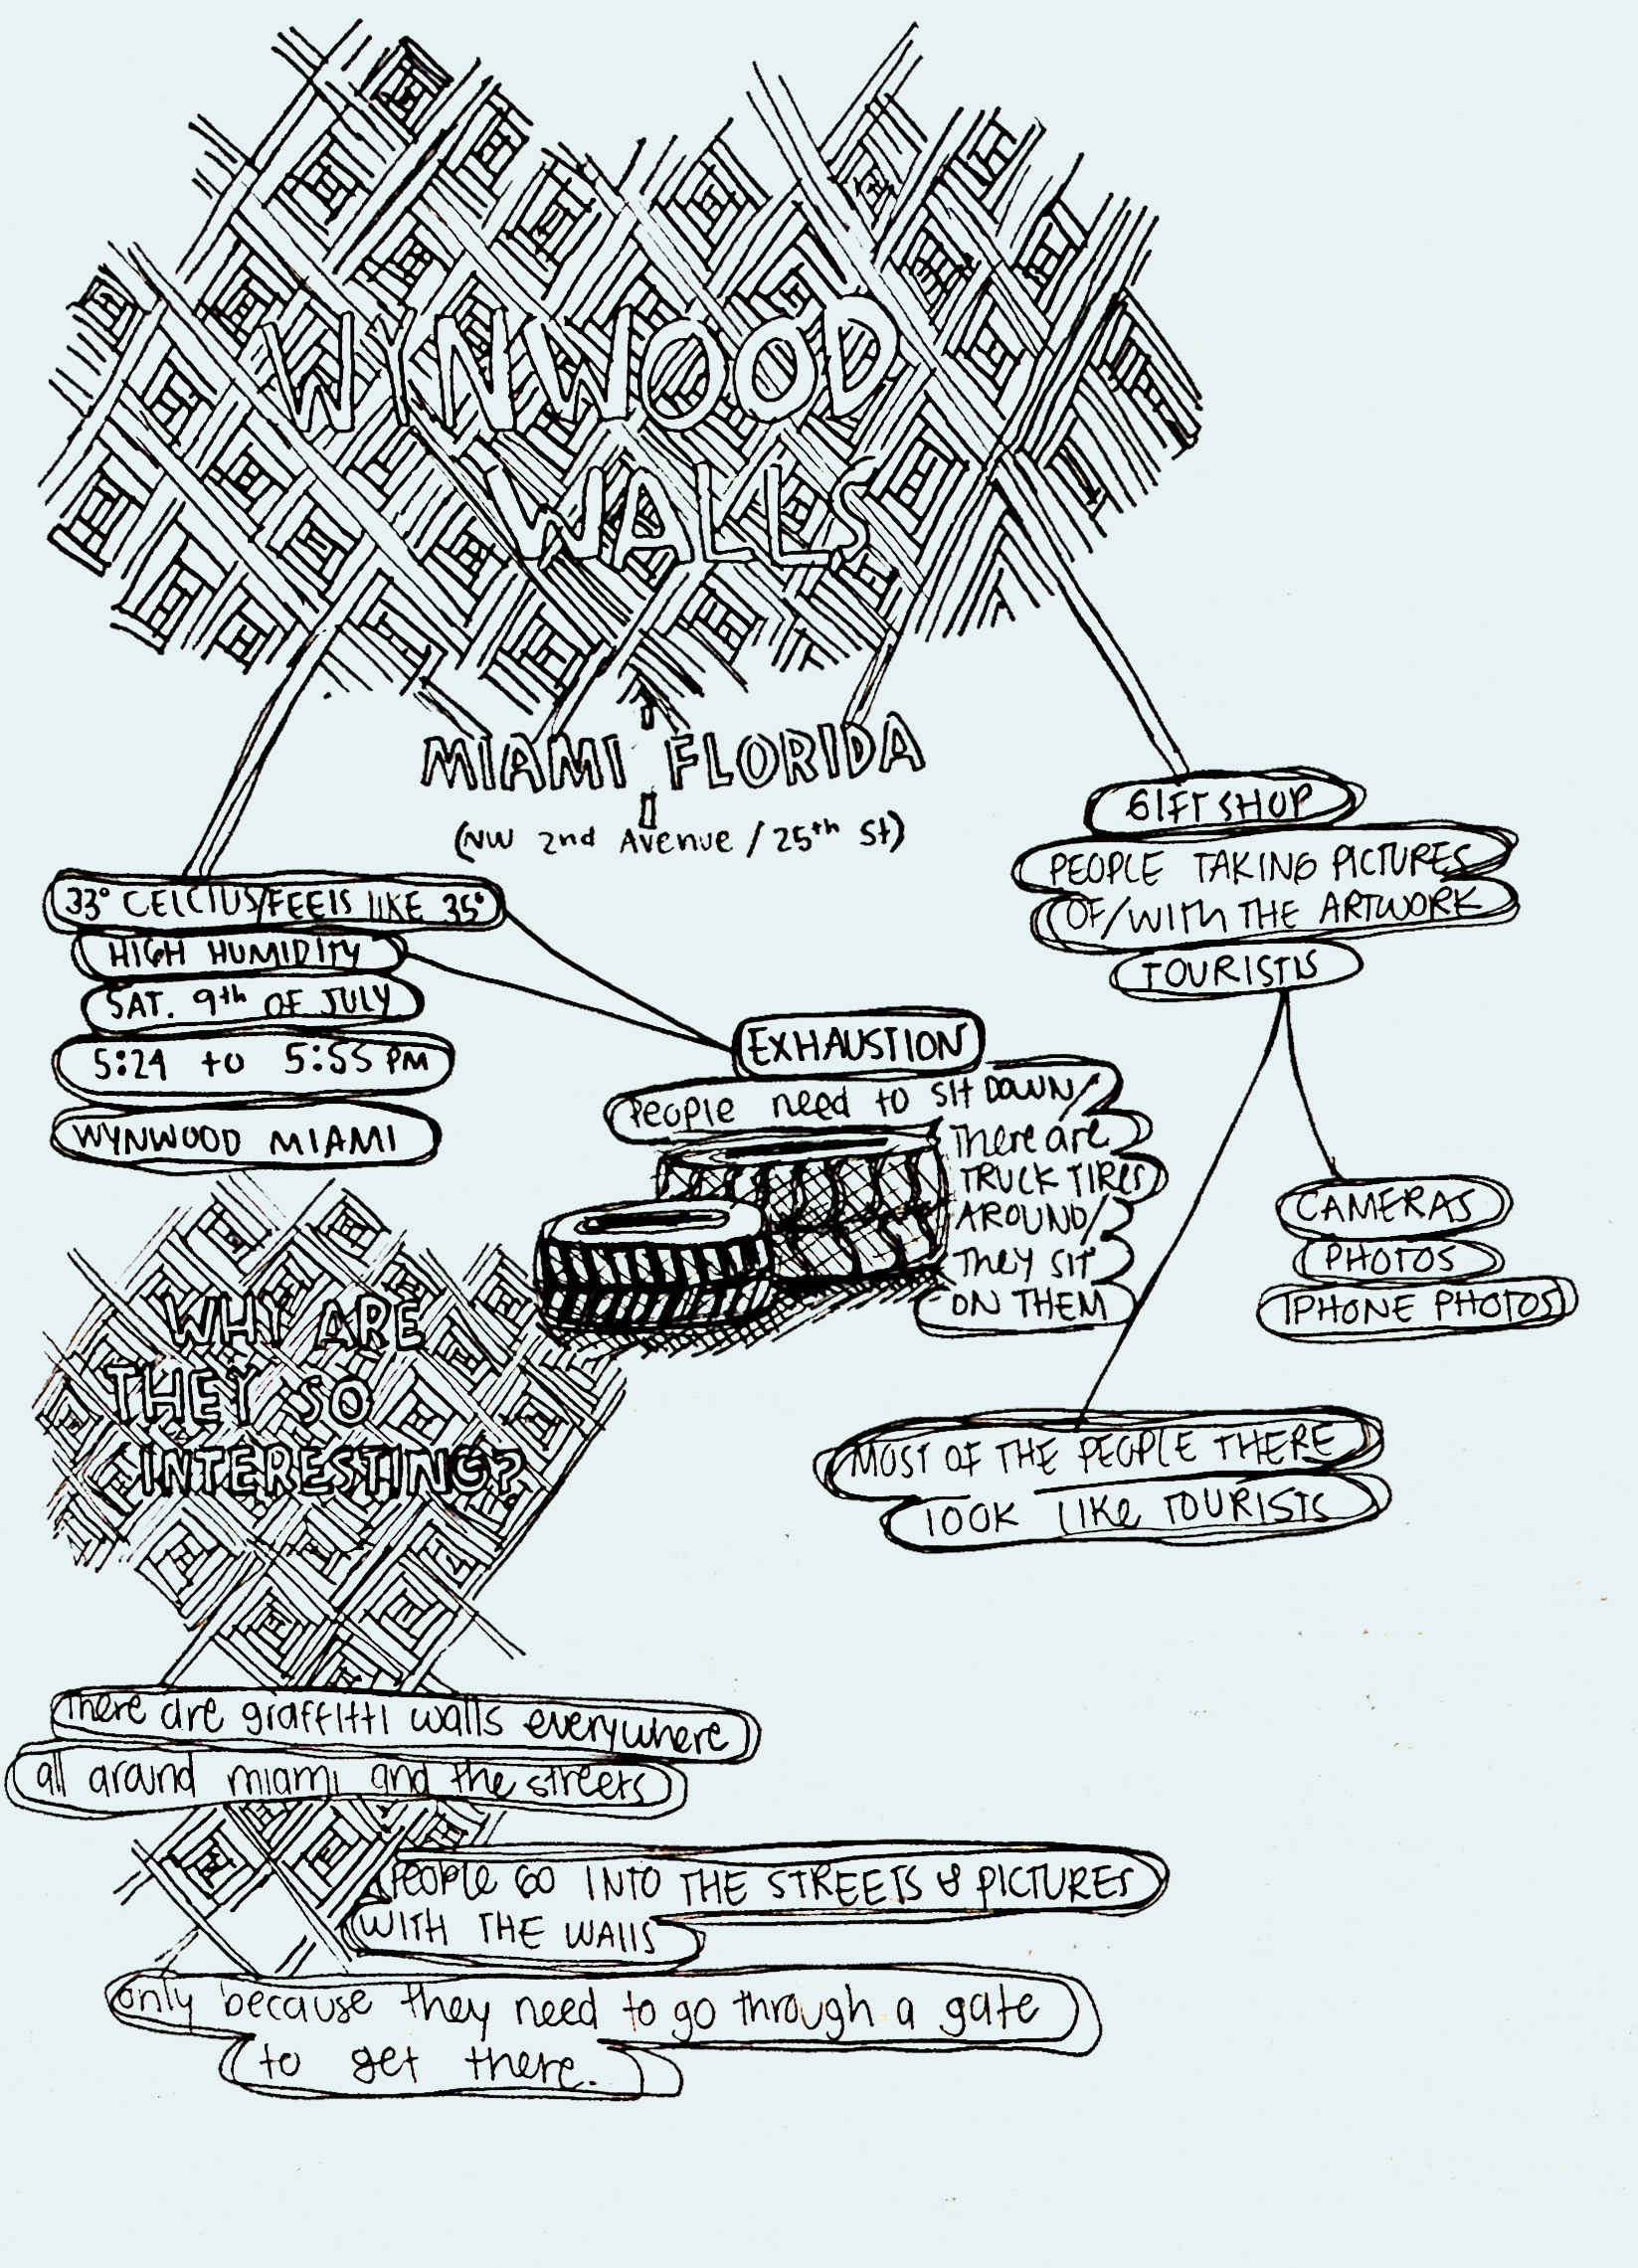 WYNWOOD
WALLS
MIAMI FLORIDA
(NW 2nd Avenue / 25th St)
33° CELCIUS/FEELS LIKE 35°
HIGH HUMIDITY
SAT. 9th OF JULY
5:24 to 5:55 PM
WYNWOOD MIAMI
GIFT SHOP
PEOPLE TAKING PICTURES
OF/WITH THE ARTWORK
TOURISTS
EXHAUSTION
People need to SIT DOWN/
There are
TRUCK TIRES
AROUND/
They SIT
ON THEM
CAMERAS
PHOTOS
IPHONE PHOTOS
MOST OF THE PEOPLE THERE
LOOK LIKE TOURISTS
WHY ARE
THEY SO
INTERESTING?
There are graffitti walls everywhere
all around miami and the streets
PEOPLE GO INTO THE STREETS & PICTURES
WITH THE WALLS
only because they need to go through a gate
to get there.